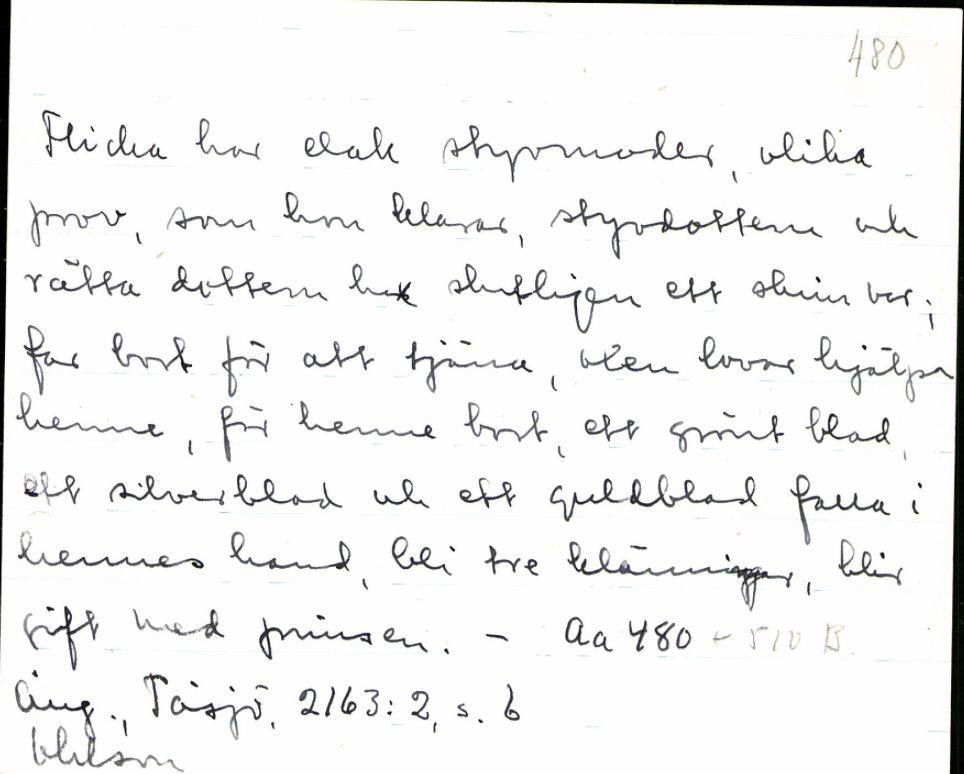 480
Flicka har elak styvmoder, olika
prov, som hon klarar, styvdottern och
rätta dottern har slutligen ett skrin var;
far bort för att tjäna, oxen lovar hjälpa
henne, för henne bort, ett grönt blad,
ett silverblad och ett guldblad falla i
hennes hand, bli tre klänningar, blir
gift med prinsen. – Aa 480 + 510 B.
Ång., Tåsjö, 2163:2, s. 6